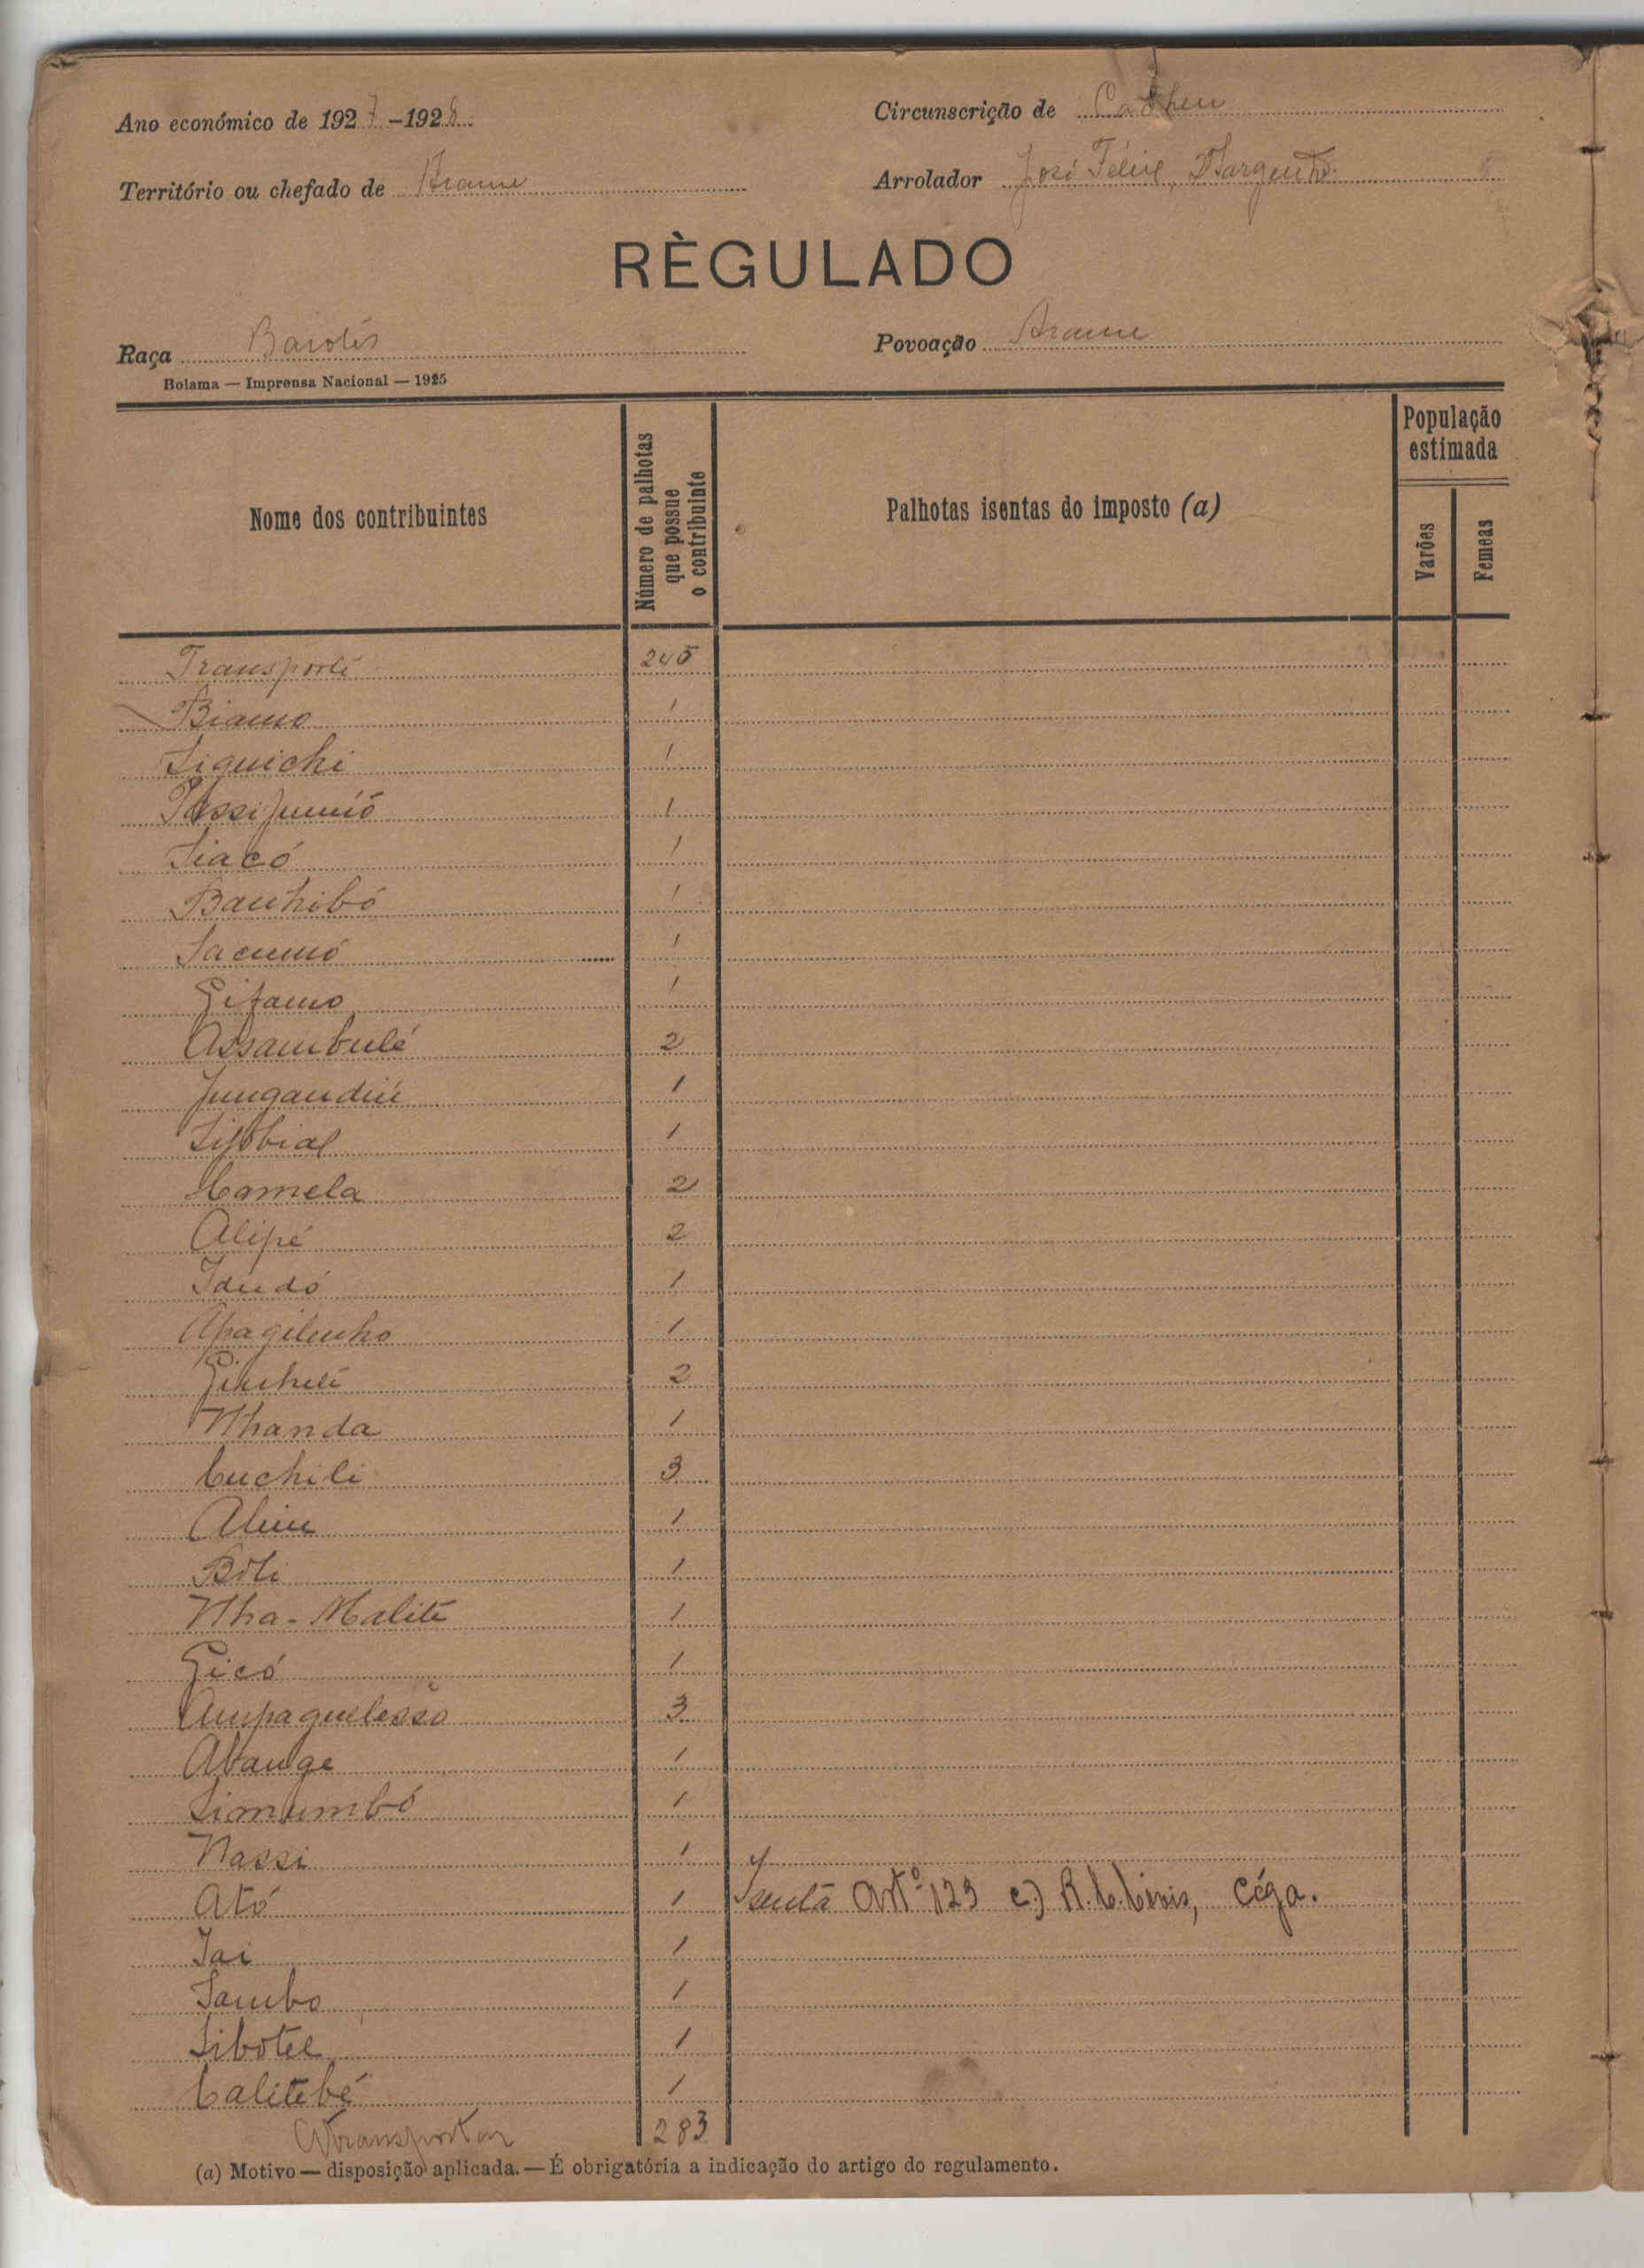 Ano económico de 1927-1928
Circunscrição de Cacheu
Território ou chefado de Arame
Arrolador José Félix, Sargento
RÈGULADO
Raça Baiotes
Povoação Arame
Bolama — Imprensa Nacional — 1925
Nome dos contribuintes
Número de palhotas que possue o contribuinte
Palhotas isentas do imposto (a)
População estimada
Varões
Femeas
Transporte 245
Biamo 1
Siquichi 1
1
Siacó 1
Banhibó 1
Sacumó 1
Gifamo 1
Assambulé 2
Jungandin 1
1
Camela 2
Alipé 2
1
Apagilenho 1
2
Nhanda 1
Cuchili 3
Aliu 1
Bóti 1
Nha-Malité 1
Gicó 1
Ampaguelesso 3
Abange 1
Simumbó 1
Nassi 1
Ató 1 Isenta Artº 123 c) R. C. Civis, Céga.
Jai 1
Sambo 1
Sibotel 1
Calitebé 1
A transportar 283
(a) Motivo — disposição aplicada. — É obrigatória a indicação do artigo do regulamento.